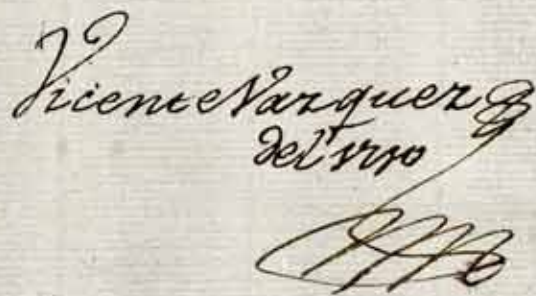 Vicente Vazquez
del rrio